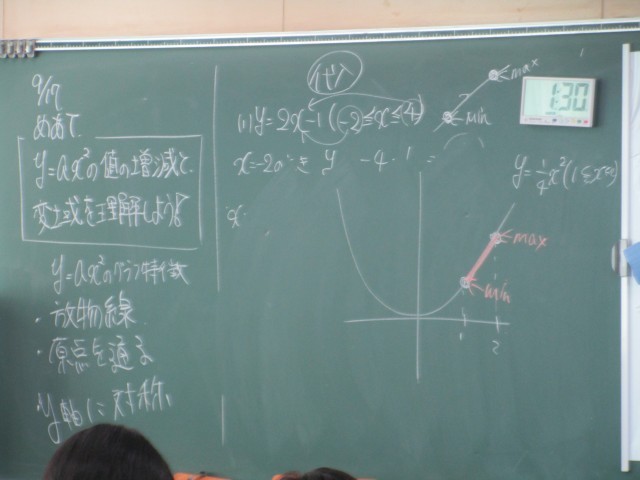 9/17
めあて
y=ax²の値の増減と
変域を理解しよう!
y=ax²のグラフ特徴
・放物線
・原点を通る
・y軸に対称
代入
(1) y=2x-1 (-2≦x≦4)
x=-2のとき y -4-1 =
max
min
1:30
y=1/4x²(1≦x≦2)
max
min
1
2